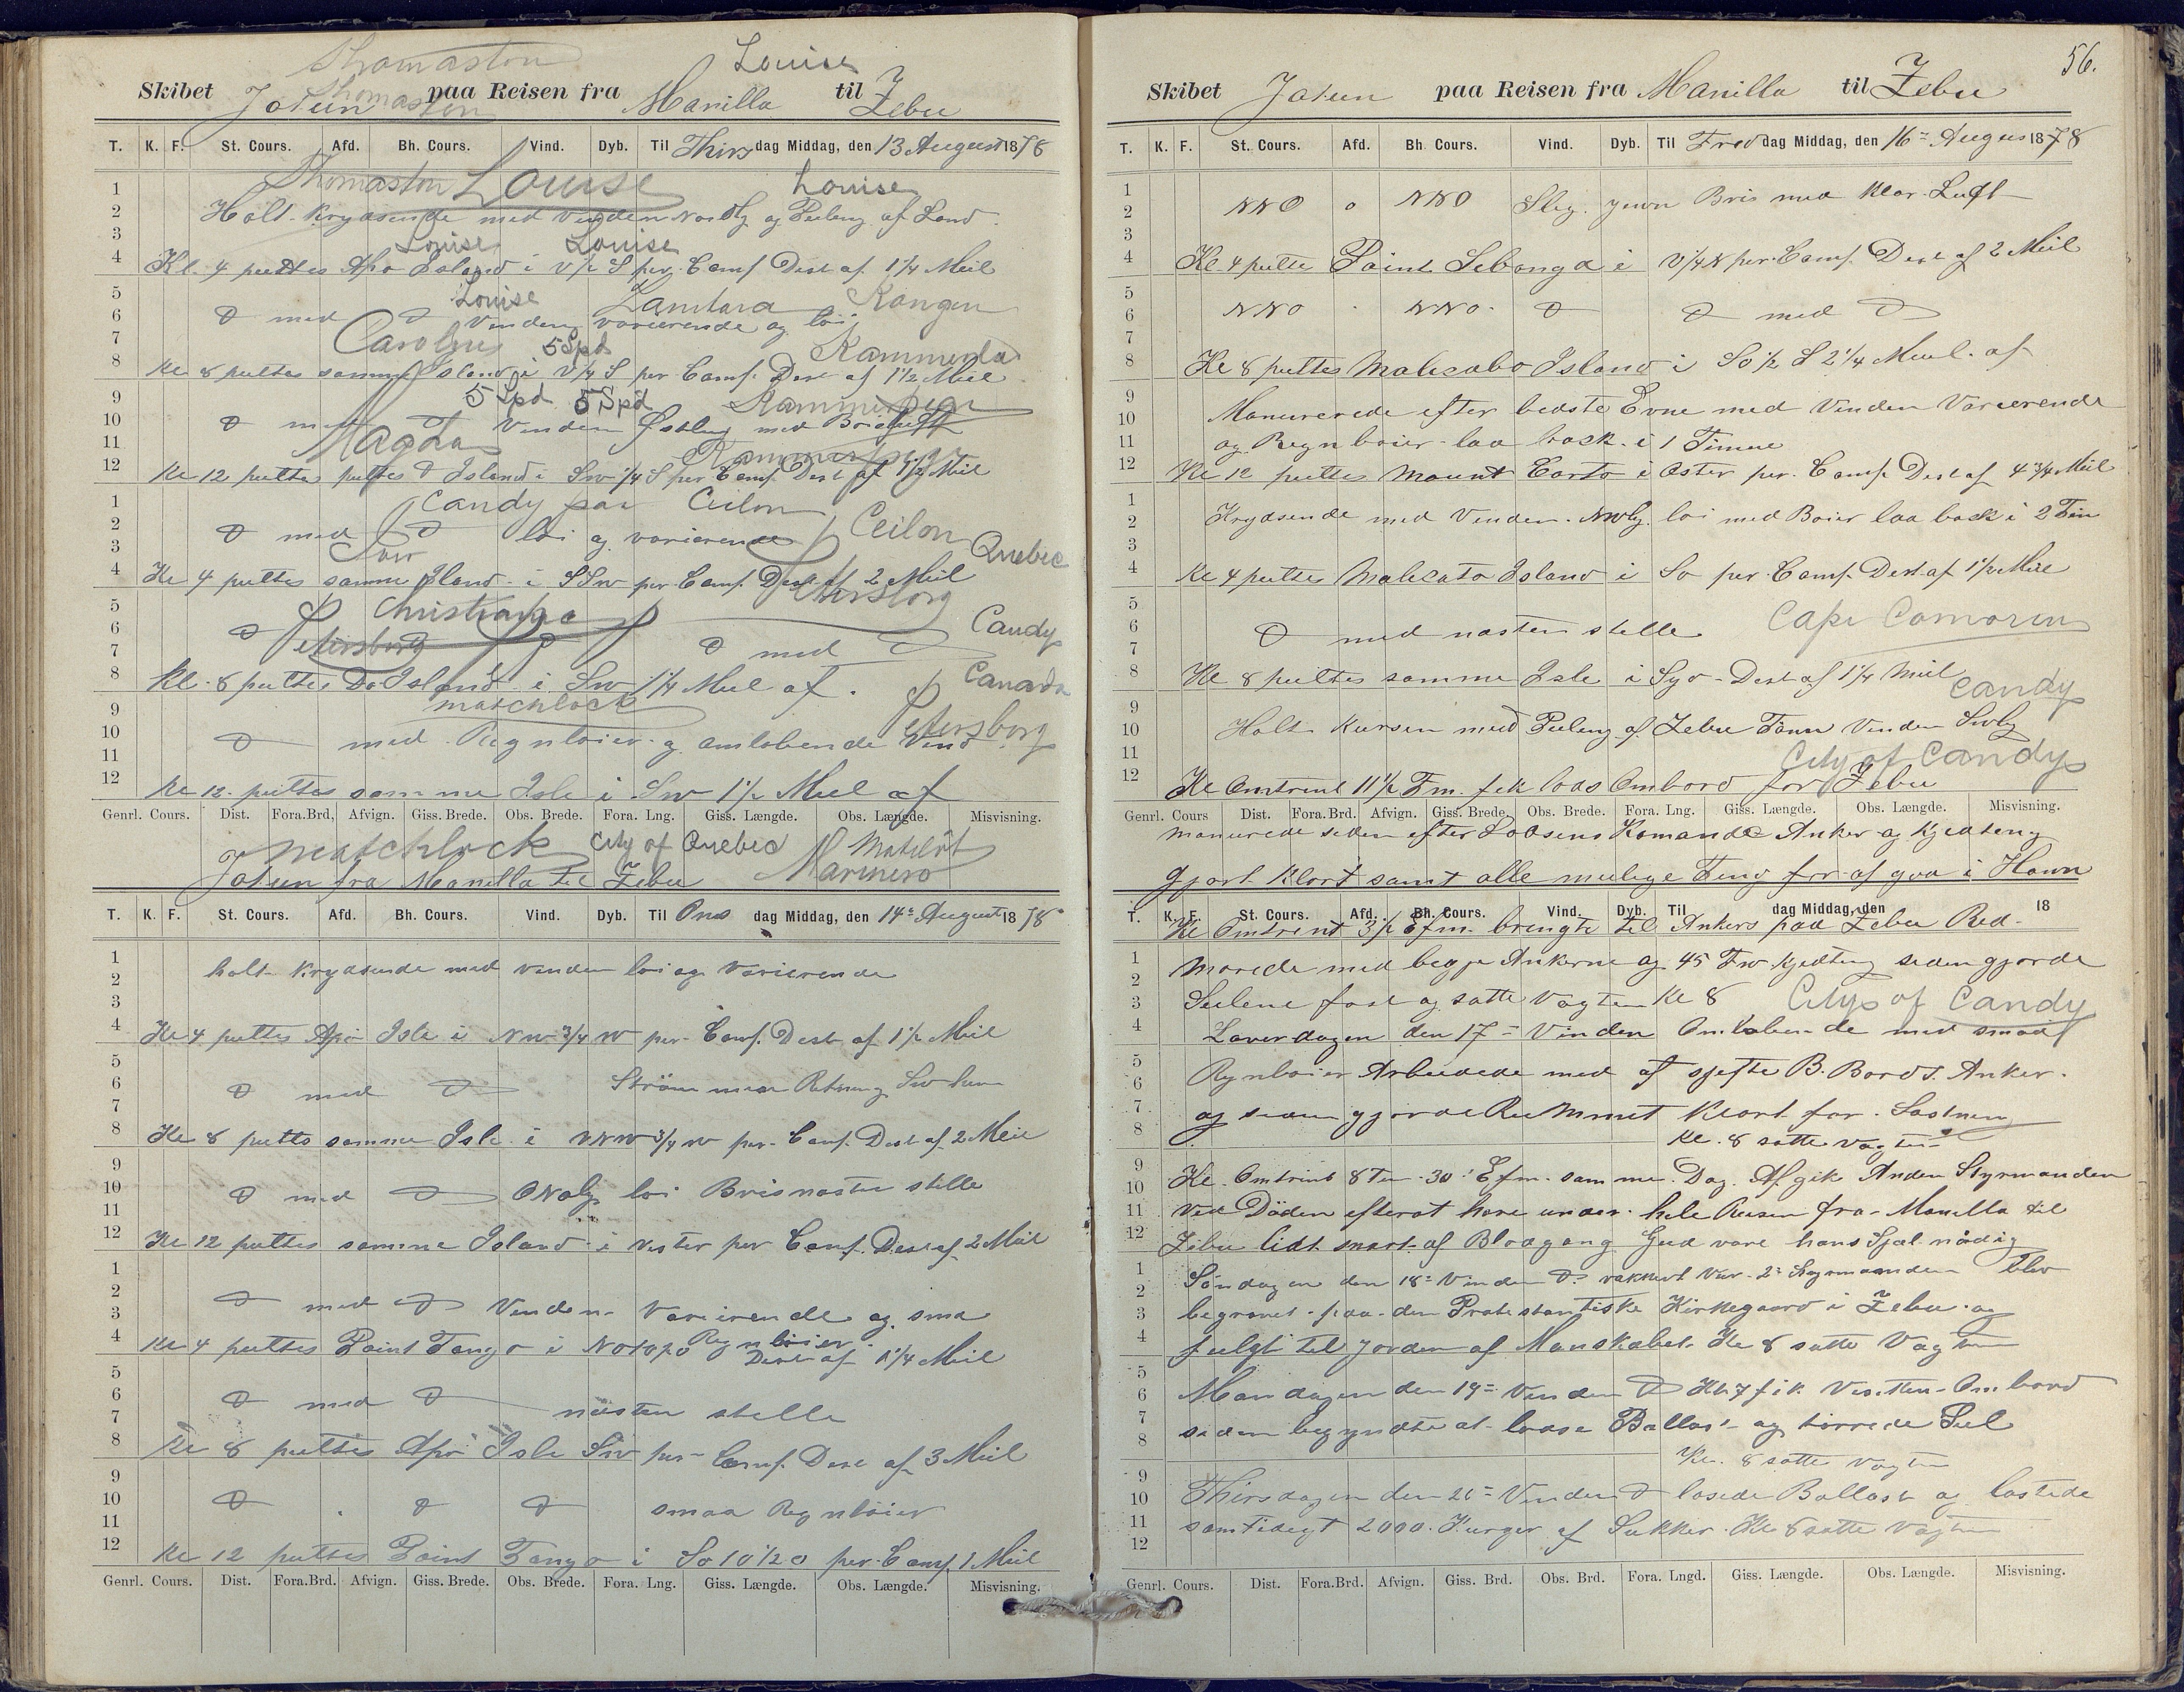 Thomaston Louise
Skibet Jotun paa Reisen fra Manilla til Zebu
Thomaston
T. K. F. St. Cours. Afd. Bh. Cours. Vind. Dyb. Til Thirs dag Middag, den 13 August 1878
Thomaston Louise Louise
Holt krydsende med Vinden Nordlg og Peileng af Land
Louise Louise
Kl. 4 peiltes Apo Island i V 1/2 S per. Comp. Dest af 1 1/4 Miil
Louise Zamtara Kongen
D med D Vinden varierende og løi
Carolgus 5 Spd Kammerda
Kl 8 peiltes samme Island i V 1/4 S per Comp. Dest af 1 1/2 Miil
5 Spd 5 Spd
D med D Vinden Østleng med
Magda
Kl 12 peiltes peiltes D Island i SW 1/4 S per Comp. Dest af 1 1/2 Miil
Candy paa Ceilon
D med D løi og varierende Ceilon Quebec
Kl 4 peiltes samme Iland i SSW per Comp. Dest af 2 Miil
Petersborg
Christiania Candy
Petersborg D med D
Kl. 8 peiltes Do Island i SW 1 1/4 Miil af. Canada
matchlock Petersborg
D med Regnbøier og omløbende Vind
Kl 12 peiltes samme Isle i SW 1 1/2 Miil af
Genrl. Cours. Dist. Fora.Brd, Afvign. Giss. Brede. Obs. Brede. Fora. Lng. Giss. Længde. Obs. Længde. Misvisning.
matchlock City of Quebec Matelot
Jotun fra Manilla til Zebu Marinero
T. K. F. St. Cours. Afd. Bh. Cours. Vind. Dyb. Til Ons dag Middag, den 14de August 1878
holt krydsende med vinden løi og Varierende
Kl 4 peiltes Apo Isle i NW 3/4 W per Comp. Dest af 1 1/2 Miil
D med D Strøm
Kl 8 peilts samme Isle i VNW 3/4 W per. Comp. Dest af 2 Miil
D med D løi Bris nasten stelle
Kl 12 peiltes samme Island i Vester per Comp. Dest af 2 Miil
D med D Vinden Varierende og sma
Regnbøier
Kl 4 peiltes Point Tango i Dest af 1 1/4 Miil
D med D nästen stelle
Kl 8 peiltes Apo Isle SW per Comp. Dest af 3 Miil
D D D smaa Regnbøier
Kl 12 peiltes Point Tango i So 10 1/2 O per. Comp. 1 Miil
Genrl. Cours. Dist. Fora.Brd. Afvign. Giss. Brede. Obs. Brede. Fora. Lng. Giss. Længde. Obs. Længde. Misvisning.
56.
Skibet Jotun paa Reisen fra Manilla til Zebu
T. K. F. St. Cours. Afd. Bh Cours. Vind. Dyb. Til Fre dag Middag, den 16de August 1878
NNO o NNO Slig. jevn Bris med klar Luft
Kl 4 peilte Point Sebonga i V 1/4 N per. Comp. Dest af 2 Miil
NNO NNO. D D med D
Kl 8 peiltes Malicabo Island i So 1/2 S 2 1/4 Miil. af
Manurerede efter bedste Evne med Vinden Varierende
og Regnbøier laa back i 1 Timme
Kl 12 peiltes Mount Corto i Oster per. Comp. Dest af 4 3/4 Miil
Krydsende med Vinden. NWlg. løi med Bøier laa back i 2 Tim
Kl 4 peiltes Malicato Island i So per Comp. Dest af 1 1/2 Miil
D med nasten stelle Cape Comorin
Kl 8 peiltes samme Isle i Dest af 1 1/4 Miil
Candy
Holt Kursen med Peileng af Zebu Vinden SWlg
City of Candy
Kl Omtrent 11 1/2 Fm. fik lods Ombord for Zebu
Genrl. Cours Dist. Fora.Brd. Afvign. Giss. Brede. Obs. Brede. Fora. Lng. Giss. Længde. Obs. Længde. Misvisning.
manurede siden efter Lodsens Komando Anker og Kjedteng
gjort klart samt alle mulige Ting for at gaa i Havn
T. K. F. St. Cours. Afd. Bh. Cours. Vind. Dyb. Til dag Middag, den 18
Kl Omtrent 3 1/2 Efm. bringte til Ankers paa Zebu Red-
Morede med begje Ankerne og 45 Fw kjedteng siden gjorde
Seilene fast og satte Vagten Kl 8 City of Candy
Laverdagen den 17de Vinden Omløbende med smaa
Regnbøier Arbeidede med at B. Bords. Anker.
og siden gjorde Rummet klart for Lastning
Kl. 8 satte Vagten
Kl. Omtrint 8 Tm. 30' Efm. samme Dag. Afgik Anden Styrmanden
Ved Döden efterat have under hele Reisen fra Manilla til
Zebu lidt svart af Blodgang Gud vare hans Sjæl nådig
Söndagen den 18de Vinden D. vakkert Ver. 2de Styrmanden blev
begravet paa den Protestantiske Kirkegaard i Zebu. og
fulgt til jorden af Manskabet. Kl 8 satte Vagten
Mandagen den 19de Vinden D Kl 7 fik Visitten Ombord
siden begyndte at losse Ballast og tørrede Seil
Kl. 8 satte Vagten
Thirsdagen den 20de Vinden D lossede Ballast og lastede
samtidigt 2000. Kurger af Sukker. Kl 8 satte Vagten
Genrl. Cours. Dist. Fora.Brd. Afvign. Giss. Brd. Obs. Brd. Fora. Lngd. Giss. Længde. Obs. Længde. Misvisning.